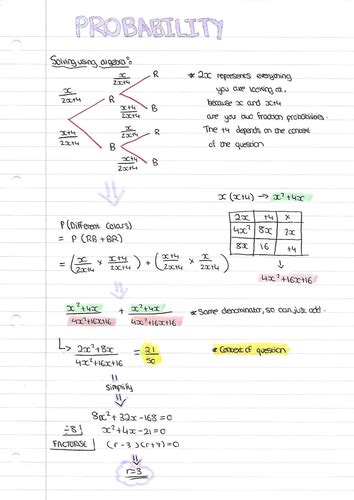 PROBABILITY
Solving using algebra:
x/2x+4
R
x/2x+4
R
x+4/2x+4
B
x+4/2x+4
B
x/2x+4
R
x+4/2x+4
B
* 2x represents everything
you are looking at,
because x and x+4
are you own fraction probabilities.
The +4 depends on the context
of the question
x(x+4) → x²+4x
2x +4 x
4x² 8x 2x
8x 16 +4
4x²+16x+16
P(Different Colours)
= P(RB+BR)
= (x/2x+4 × x+4/2x+4) + (x+4/2x+4 × x/2x+4)
x²+4x/4x²+16x+16 + x²+4x/4x²+16x+16 * Same denominator, so can just add.
↳ 2x²+8x/4x²+16x+16 = 21/50 * Context of question
simplify
8x²+32x-168=0
÷8 x²+4x-21=0
FACTORISE (r-3)(r+7)=0
r=3